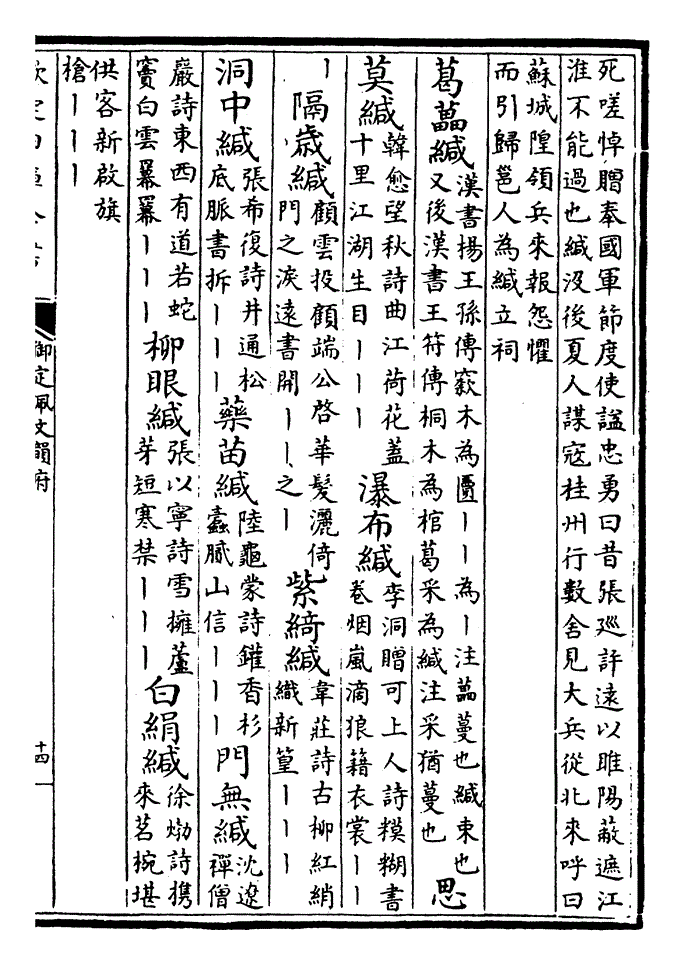 死嗟悼贈奉國軍節度使諡忠勇曰昔張廵許遠以睢陽蔽遮江
淮不能過也緘沒後夏人謀寇桂州行數舍見大兵從北来呼曰
蘇城隍領兵来報怨懼
而引歸邕人為緘立祠
葛藟緘 漢書揚王孫傳窾木為匵丨丨為丨注藟蔓也緘束也
又後漢書王符傳桐木為棺葛采為緘注采猶蔓也 思
莫緘 韓愈望秋詩曲江荷花蓋
十里江湖生目丨丨丨
瀑布緘 李洞贈可上人詩糢糊書
卷烟嵐滴狼籍衣裳丨丨
丨
隔歲緘 顧雲投顧端公啓華髮灑倚
門之淚遠書開丨丨之丨
紫綺緘 韋莊詩古柳紅綃
織新篁丨丨丨
洞中緘 張希復詩井通松
底脈書拆丨丨丨
藥苗緘 陸龜蒙詩鑵香杉
蠹膩山信丨丨丨
門無緘 沈遼
禪僧
巖詩東西有道若蛇
竇白雲羃羃丨丨丨
柳眼緘 張以寧詩雪擁蘆
芽短寒禁丨丨丨
白絹緘 徐㶿詩携
来茗椀堪
供客新啟旗
槍丨丨丨
欽定四庫全書
御定佩文韻府
十四